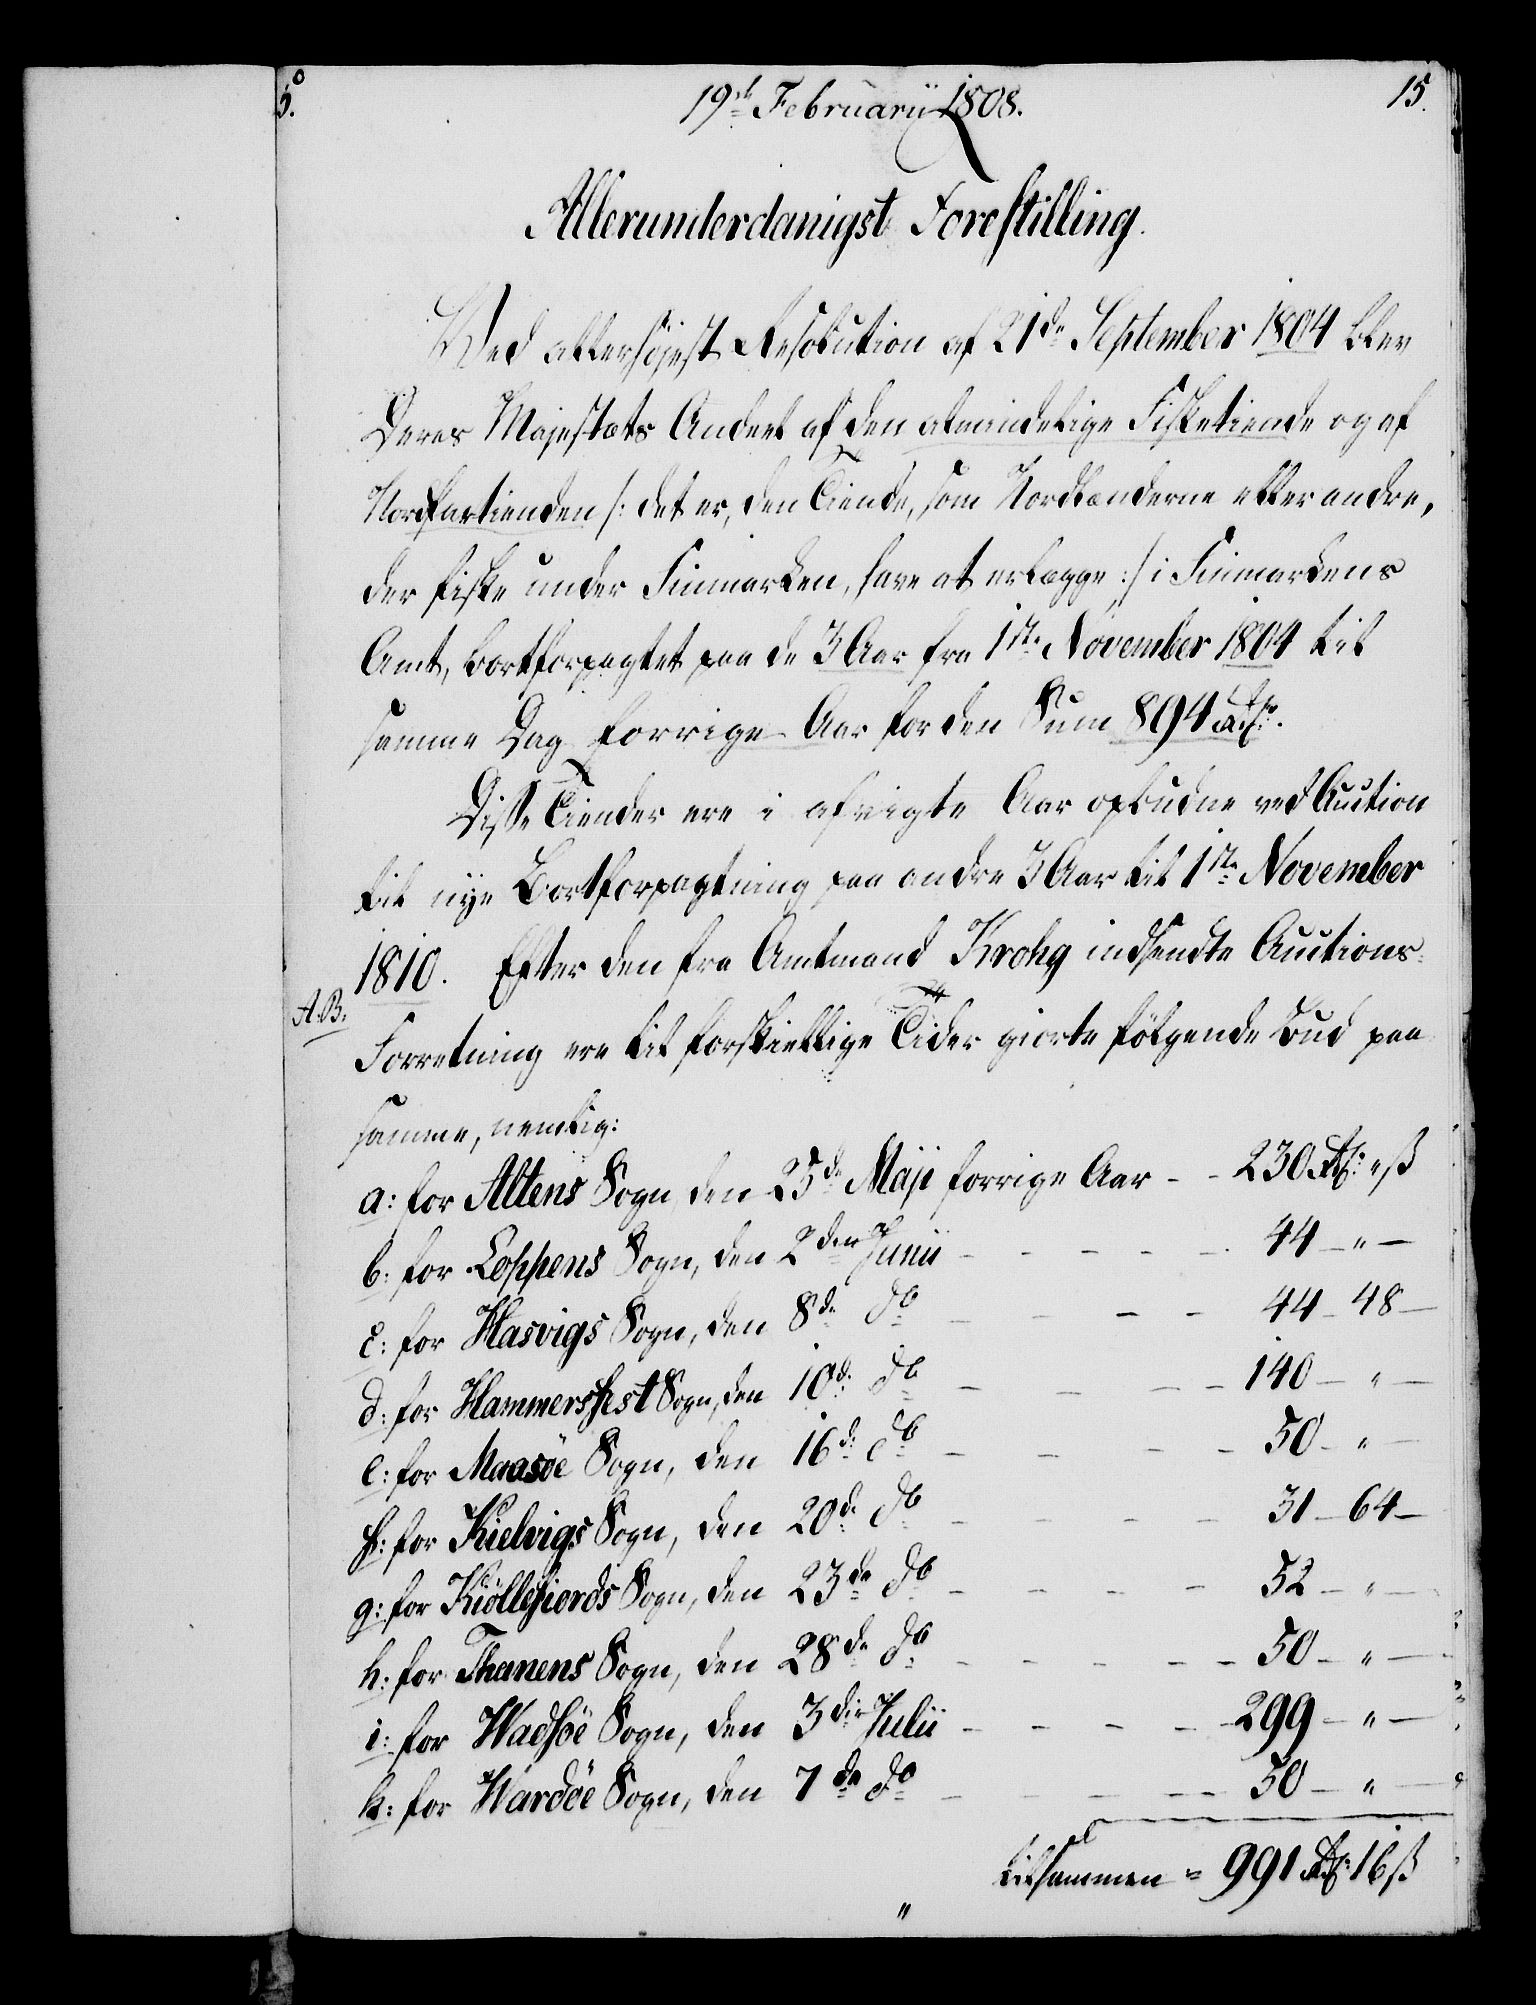 5.
19de Februarii 1808.
15.
Allerunderdanigst Forestilling.
Ved allerhøjest Resolution af 21de September 1804 blev
Deres Majestæts Andeel af den almindelige Fisketiende og af
Nordfartienden /: det er, den Tiende, som Nordlænderne eller andre,
der fiske under Finmarken, have at erlægge :/ i Finmarkens
Amt, bortforpagtet paa de 3 Aar fra 1ste November 1804 til
samme Dag forrige Aar for den Sum 894 Rdlr.
Disse Tiender ere i afvigte Aar opbudne ved Auction
til nye Bortforpagtning paa andre 3 Aar til 1ste November
1810. Efter den fra Amtmand Krohg indsendte Auctions-
A.B.
Forretning ere til forskiellige Tider giorte følgende Bud paa
samme, nemlig:
a: for Altens Sogn, den 25de Maji forrige Aar - - 230 Rdlr: " ß
b: for Loppens Sogn, den 2den Junii - - - - - 44 - " -
c: for Hasvigs Sogn, den 8de do - - - - 44 - 48 -
d: for Hammersfest Sogn, den 10de do - - - - 140 - " -
e: for Maasöe Sogn, den 16de do - - - - 50 - " -
f: for Kielvigs Sogn, den 20de do - - - - 31 - 64 -
g: for Kiöllefiords Sogn, den 23de do - - - - 52 - " -
h: for Thanens Sogn, den 28de do - - - - - 50 - " -
i: for Wadsöe Sogn, den 3die Julii - - - - 299 - " -
k: for Wardöe Sogn, den 7de do - - - - - 50 - " -
tilsammen = 991 Rdlr: 16 ß
"